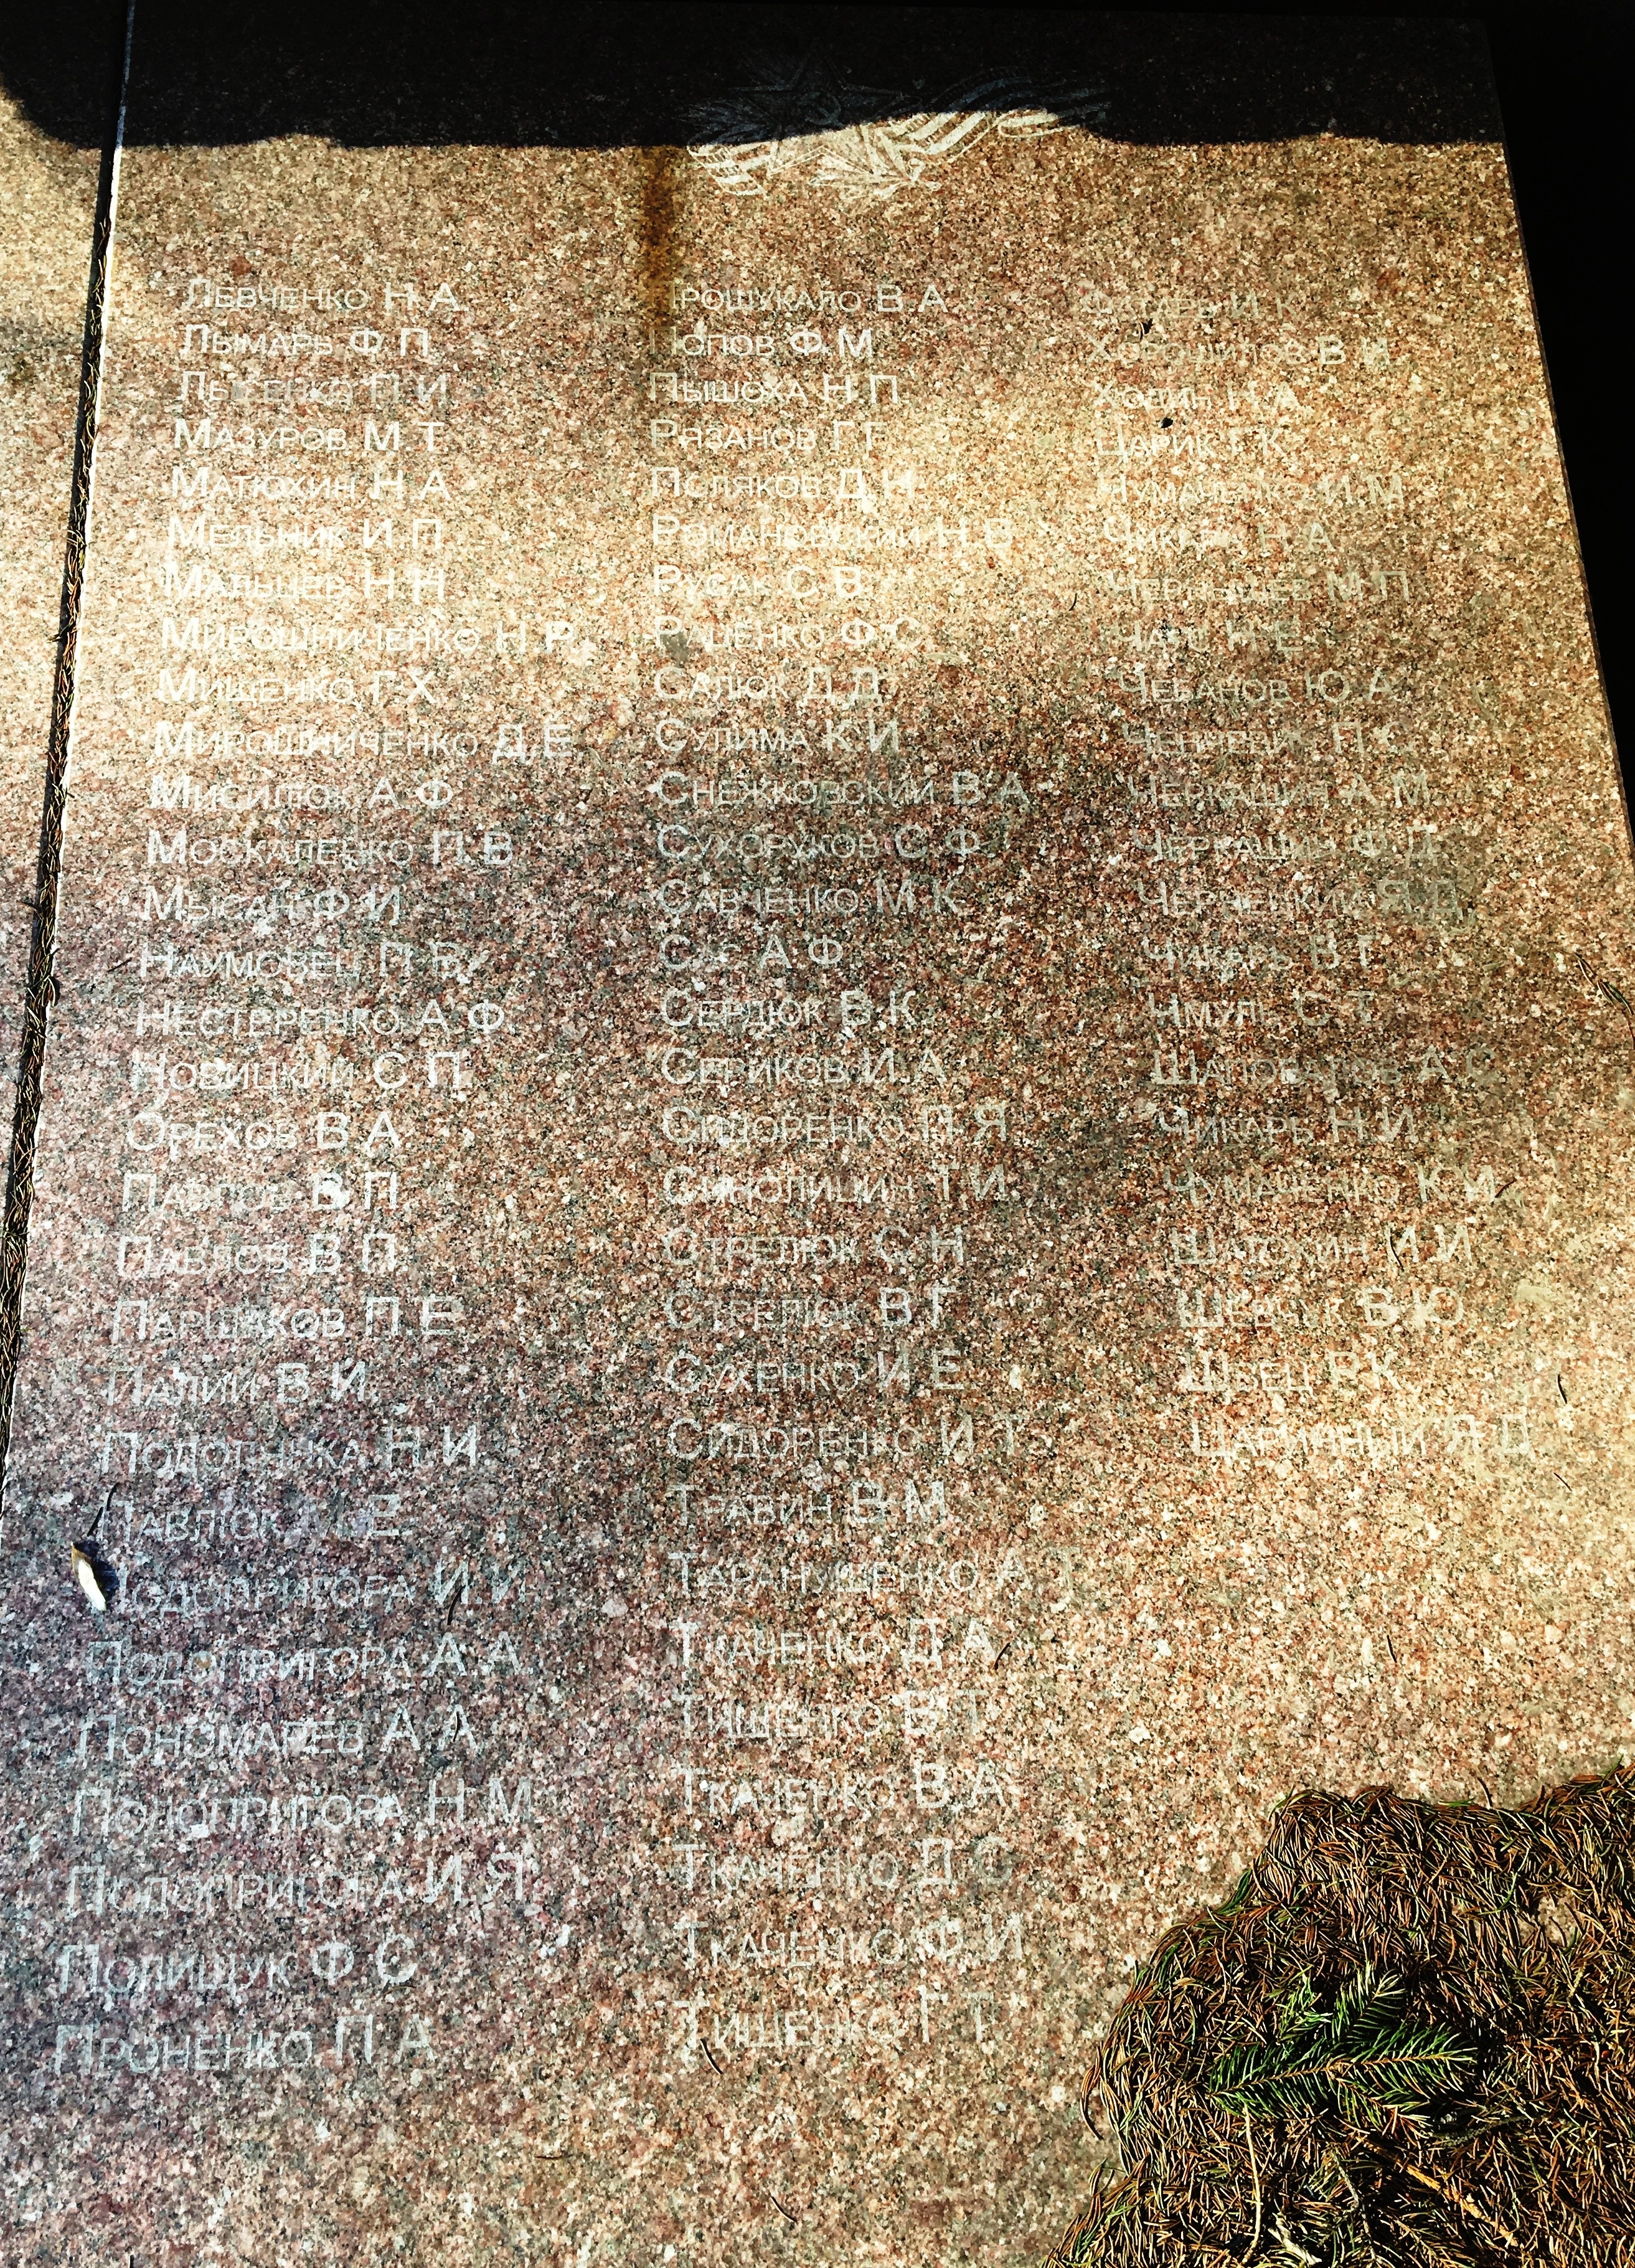 Левченко Н.А.
Лымарь Ф.П.
Лысенко П.И.
Мазуров М.Т.
Матюхин Н.А.
Мельник И.П.
Мальцев Н.Н.
Мирошниченко Н.Р.
Мищенко Г.Х.
Мирошниченко Д.Е.
Мисилюк А.Ф.
Москаленко П.В.
Мысан Ф.И.
Наумовец П.В.
Нестеренко А.Ф.
Новицкий С.П.
Орехов В.А.
Павлов В.П.
Павлов В.П.
Паршаков П.Е.
Палий В.И.
Н.И.
Павлюк Е.
Подопригора И.И.
Подопригора А.А.
Пономарев А.А.
Попопригора Н.М.
Подопригора И.Я.
Полищук Ф.С.
Проненко П.А.
Прошукало В.А.
Попов Ф.М.
Пышоха Н.П.
Рязанов Г.Г.
Поляков Д.Н.
Романовский Н.В.
Русак С.В.
Раценко Ф.С.
Салюк Д.Д.
Сулима К.И.
Снежковский В.А.
Сухоруков С.Ф.
Савченко М.К.
Сас А.Ф.
Сердюк В.К.
Сериков И.А.
Сидоренко П.Я.
Синолицин Т.И.
Стрелюк С.Н.
Стрелюк В.Г.
Сухенко И.Е.
Сидоренко И.Т.
Травин В.М.
Таранущенко А.
Ткаченко Д.А.
Тищенко В.Т.
Ткаченко В.А.
Ткаченко Д.С.
Ткаченко Ф.И.
Тищенко Г.Т.
И.К.
Хорошилов В.И.
Ходин Н.А.
Царик Г.К.
Чумаченко И.М.
Н.А.
Чернышев М.П.
Н.Е.
Чебанов Ю.А.
П.С.
Черкашин А.М.
Черкашин Ф.Д.
Чернецкий Я.Д.
Чикарь В.Г.
Чмуль С.Т.
А.С.
Чикарь Н.И.
Чумаченко К.И.
Шатохин И.И.
Шевчук В.Ю.
Швец Р.К.
Царинный Я.Д.